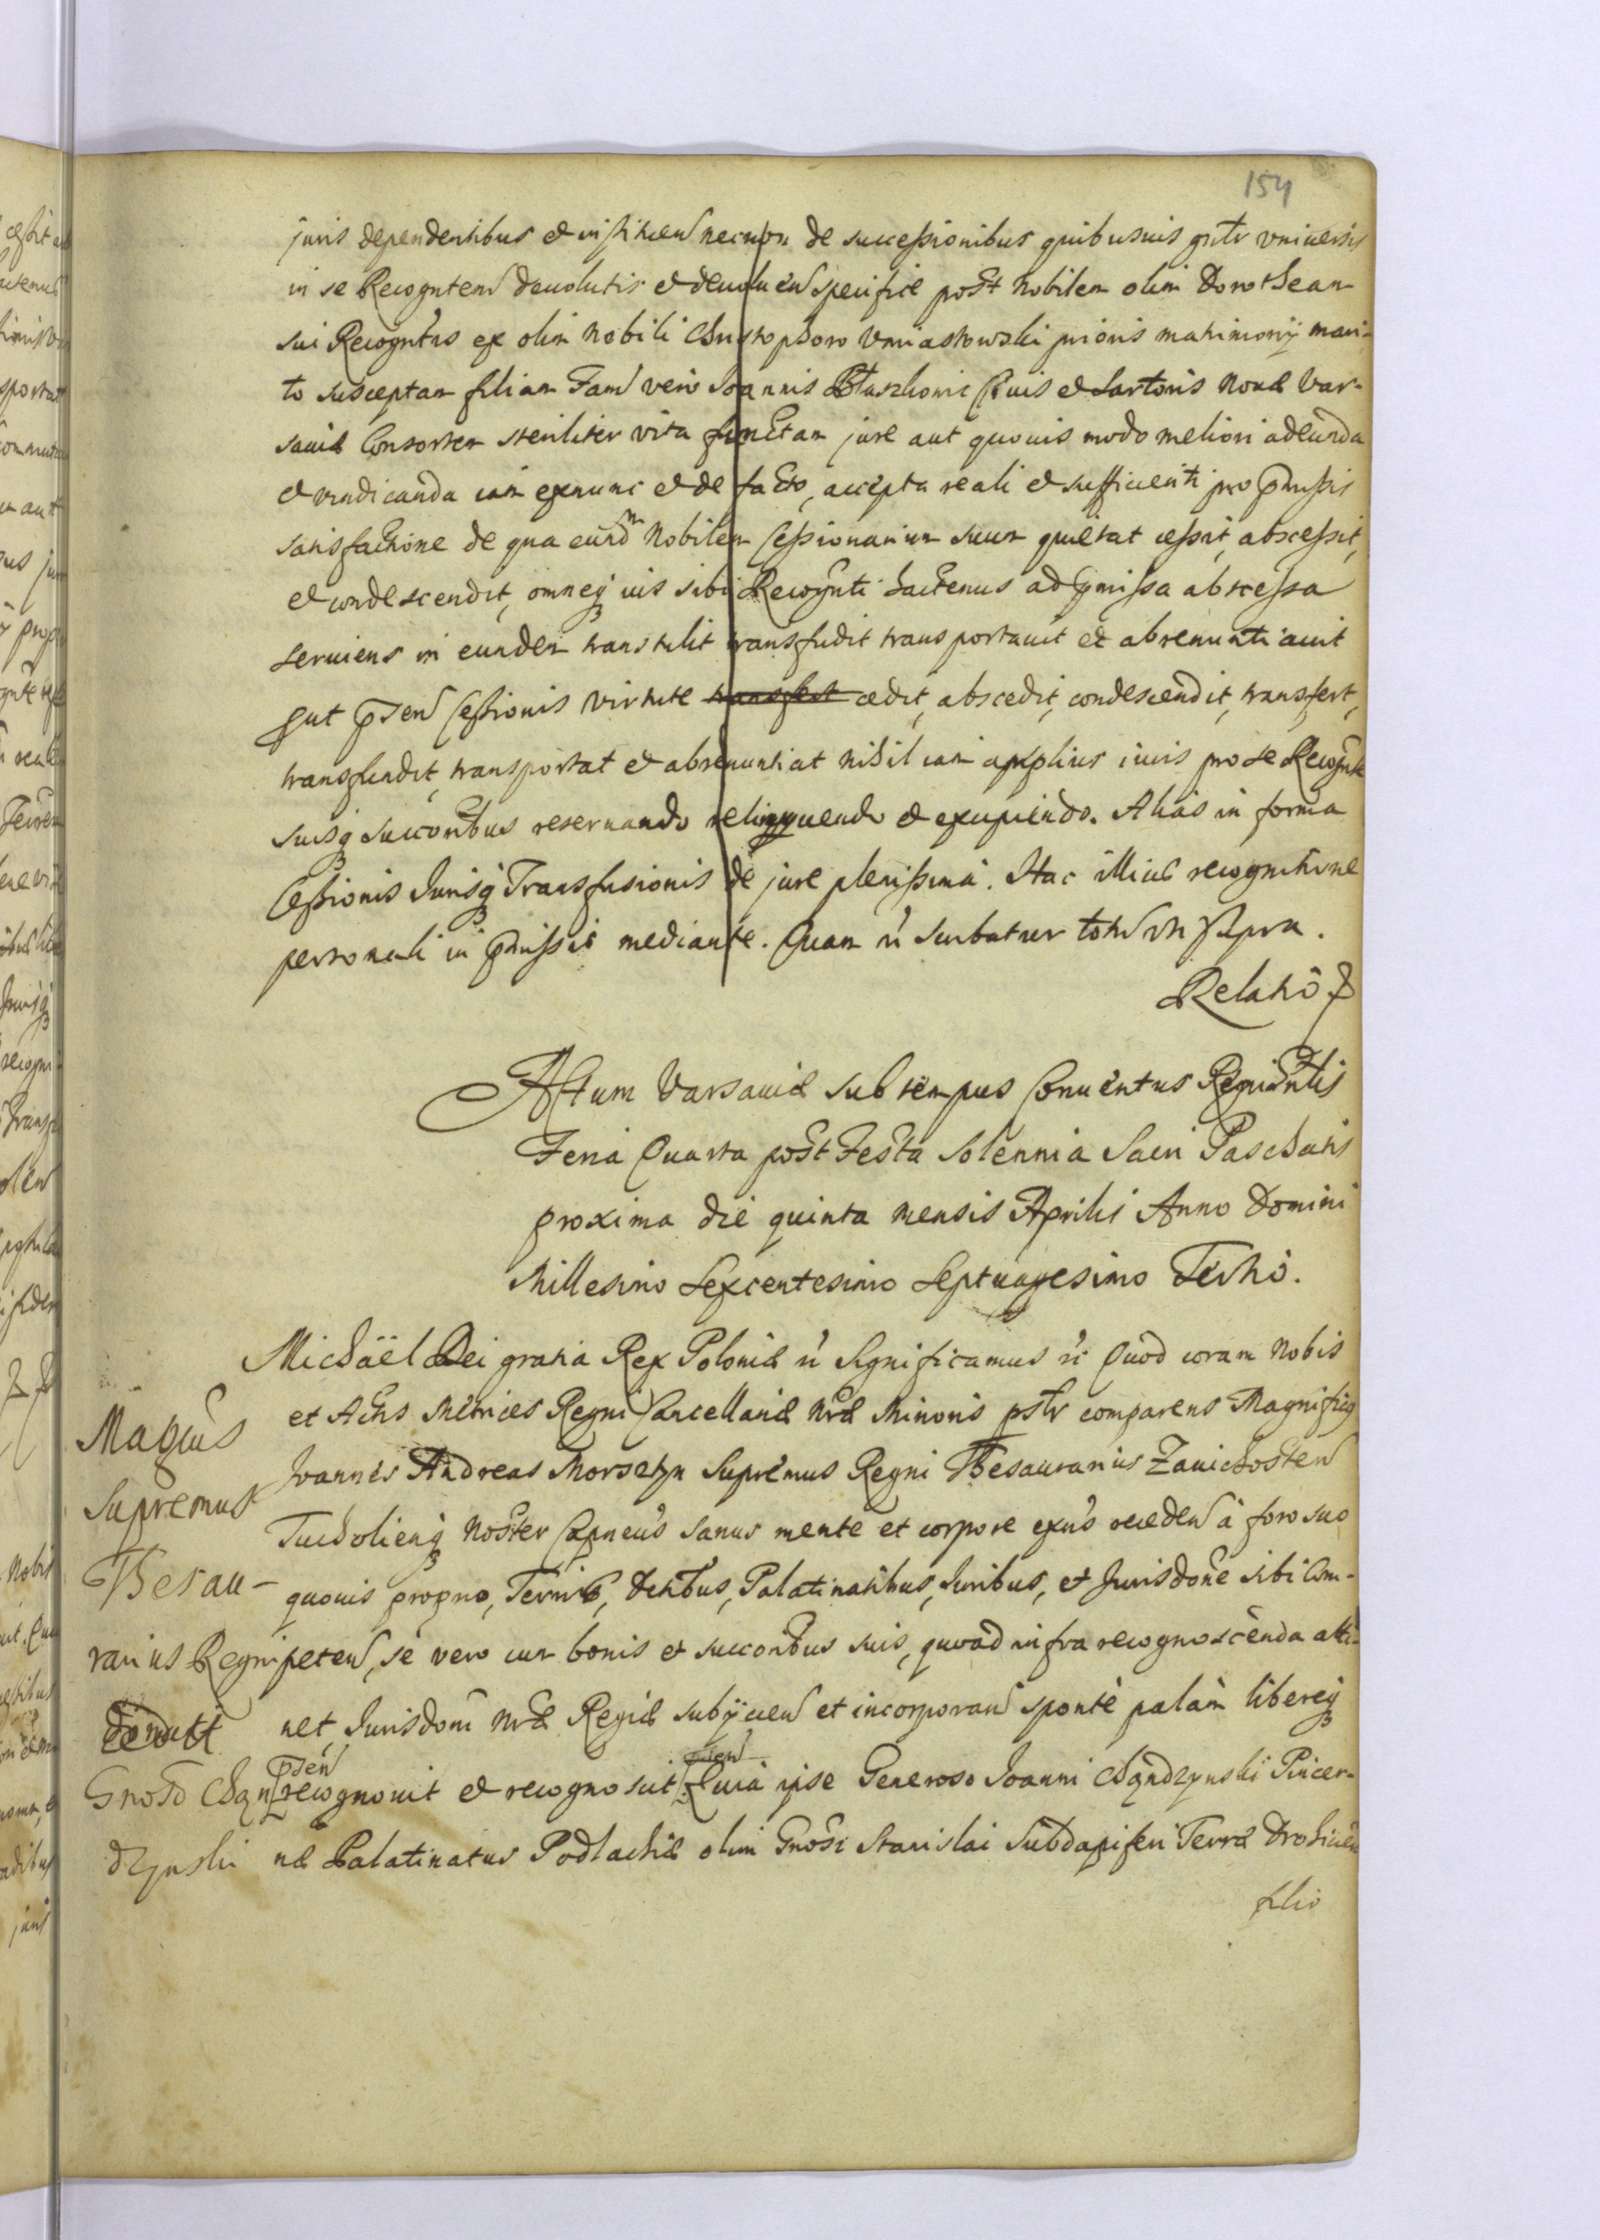 154
juris dependentibus et insistien necnon de successionibus quibusuis gnlr vniuersis
in se Recogntem deuolutis et deuoluen specifice post Nobilem olim Dorotheam
sui Recogntis ex olim Nobili Christophoro Vniastowski prioris matrimonij mari-
to susceptam filiam Fam vero Joannis Ciuis et Sartoris Nouæ Var-
sauiæ Consortem steriliter vita functam jure aut quouis modo meliori adeunda
et vendicanda iam exnunc et de facto, accepta reali et sufficienti pro pmissis
satisfactione de qua eundm Nobilem Cessionarium suum quietat cessit, abscessit,
et condescendit, omneq ius sibi Recognti hactenus ad pmissa abscessa
seruiens in eundem transtulit transfudit transportauit et abrenuntiauit
put psen Cessionis virtute transfert cedit, abscedit, condescendit, transfert,
transfundit, transportat et abrenuntiat nihil iam amplius iuris pro se Recognte
suisq succoribus reseruando relinquendo et excipiendo. Alias in forma
Cessionis Jurisq Transfusionis de jure plenissima. Hac illius recognitione
personali in pmissis mediante. Quam ri scribatur totum vt supra.
Relatio
Actum Varsauiæ sub tempus Conuentus Regni Gnlis
Feria Quarta post Festa Solennia Sacri Paschatis
proxima die quinta mensis Aprilis Anno Domini
Millesimo Sexcentesimo Septuagesimo Tertio.
Michaël Dei gratia Rex Poloniæ ri Significamus ri Quod coram Nobis
et Actis Metrices Regni Cancellariæ Nræ Minoris pslr comparens Magnificq
Joannes Andreas Morsztyn Supremus Regni Thesaurarius Zauichosten
Tucholienq Noster Capneus sanus mente et corpore exns receden à foro suo
quouis proprio, Terris, Ditibus, Palatinatibus, Juribus, et Jurisdone sibi Com-
peten, se vero cum bonis et succoribus suis, quoad infra recognoscenda atti-
net, Jurisdoni Nræ Regiæ subijcien et incorporan sponte palam libereq
psen recognouit et recognoscit Quia ipse Generoso Joanni Chądzynski Pincer-
næ Palatinatus Podlachiæ olim Gnosi Stanislai Subdapiferi Terræ Drohicen
filio
Magcus
Supremus
Thesau-
rarius Regni
Gnoso Chąn
dzynski